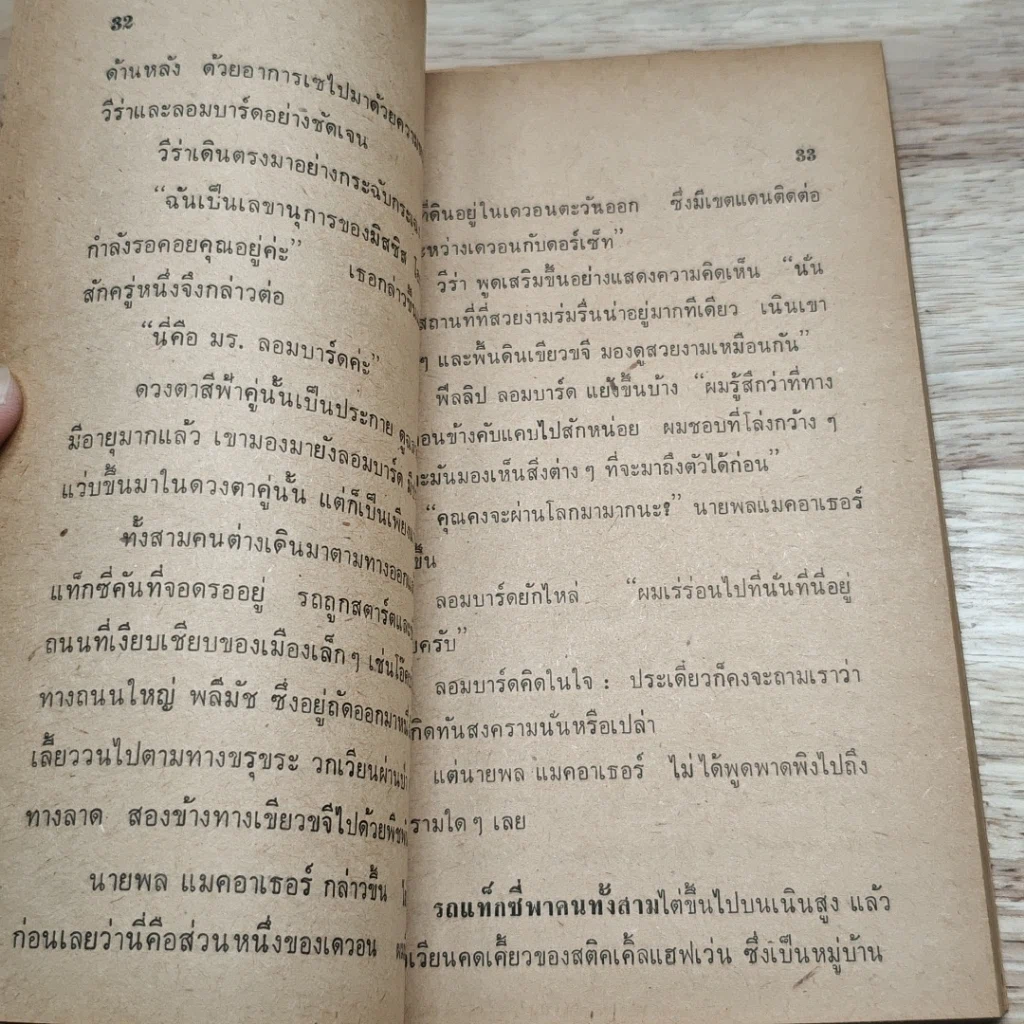 32
ด้านหลัง ด้วยอาการเซไปมาด้วยความ
วีร่าและลอมบาร์ดอย่างชัดเจน
วีร่าเดินตรงมาอย่างกระฉับกระเฉง
“ฉันเป็นเลขานุการของมิสซิส
กำลังรอคอยคุณอยู่ค่ะ” เธอกล่าวขึ้น
สักครู่หนึ่งจึงกล่าวต่อ
“นี่คือ มร. ลอมบาร์ดค่ะ”
ดวงตาสีฟ้าคู่นั้นเป็นประกาย
มีอายุมากแล้ว เขามองมายังลอมบาร์ด
แว่บขึ้นมาในดวงตาคู่นั้น แต่ก็เป็นเพียง
ทั้งสามคนต่างเดินมาตามทางออก
แท็กซี่คันที่จอดรออยู่ รถถูกสตาร์ตและ
ถนนที่เงียบเชียบของเมืองเล็กๆ เช่น
ทางถนนใหญ่ พลีมัช ซึ่งอยู่ถัดออกมา
เลี้ยววนไปตามทางขรุขระ วกเวียนผ่าน
ทางลาด สองข้างทางเขียวขจีไปด้วย
นายพล แมคอาเธอร์ กล่าวขึ้น
ก่อนเลยว่านี่คือส่วนหนึ่งของเดวอน
33
ที่ดินอยู่ในเดวอนตะวันออก ซึ่งมีเขตแดนติดต่อ
ระหว่างเดวอนกับดอร์เซ็ท”
วีร่า พูดเสริมขึ้นอย่างแสดงความคิดเห็น “นั่น
สถานที่ที่สวยงามร่มรื่นน่าอยู่มากทีเดียว เนินเขา
ๆ และพื้นดินเขียวขจี มองดูสวยงามเหมือนกัน”
ฟิลลิป ลอมบาร์ด แย้งขึ้นบ้าง “ผมรู้สึกว่าที่ทาง
ค่อนข้างคับแคบไปสักหน่อย ผมชอบที่โล่งกว้าง ๆ
มันมองเห็นสิ่งต่าง ๆ ที่จะมาถึงตัวได้ก่อน”
“คุณคงจะผ่านโลกมามากนะ?” นายพลแมคอาเธอร์
ขึ้น
ลอมบาร์ดยักไหล่ “ผมเร่ร่อนไปที่นั่นที่นี่อยู่
ครับ”
ลอมบาร์ดคิดในใจ : ประเดี๋ยวก็คงจะถามเราว่า
เกิดทันสงครามนั่นหรือเปล่า
แต่นายพล แมคอาเธอร์ ไม่ได้พูดพาดพิงไปถึง
ใด ๆ เลย
รถแท็กซี่พาคนทั้งสามไต่ขึ้นไปบนเนินสูง แล้ว
เวียนคดเคี้ยวของสติคเคิ้ลแฮฟเว่น ซึ่งเป็นหมู่บ้าน